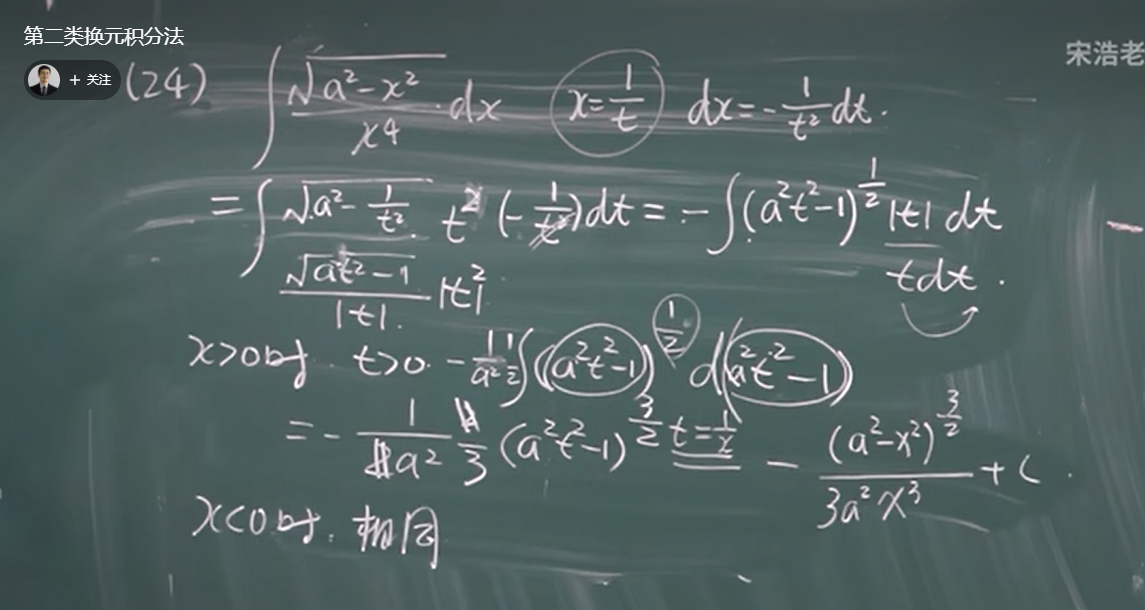 第二类换元积分法
宋浩老
+ 关注
(24) ∫ √(a²-x²)/x⁴ dx  x=1/t  dx=-1/t² dt.
=∫ √(a²-1/t²) t² (-1/t²)dt = -∫(a²t²-1)^(1/2) |t| dt
√(a²t²-1)/|t| |t|²  tdt.
x>0时. t>0. -1/a² 1/2 ∫(a²t²-1)^(1/2) d(a²t²-1)
=-1/a² 1/3 (a²t²-1)^(3/2) t=1/x -(a²-x²)^(3/2)/3a²x³ +C.
x<0时. 相同